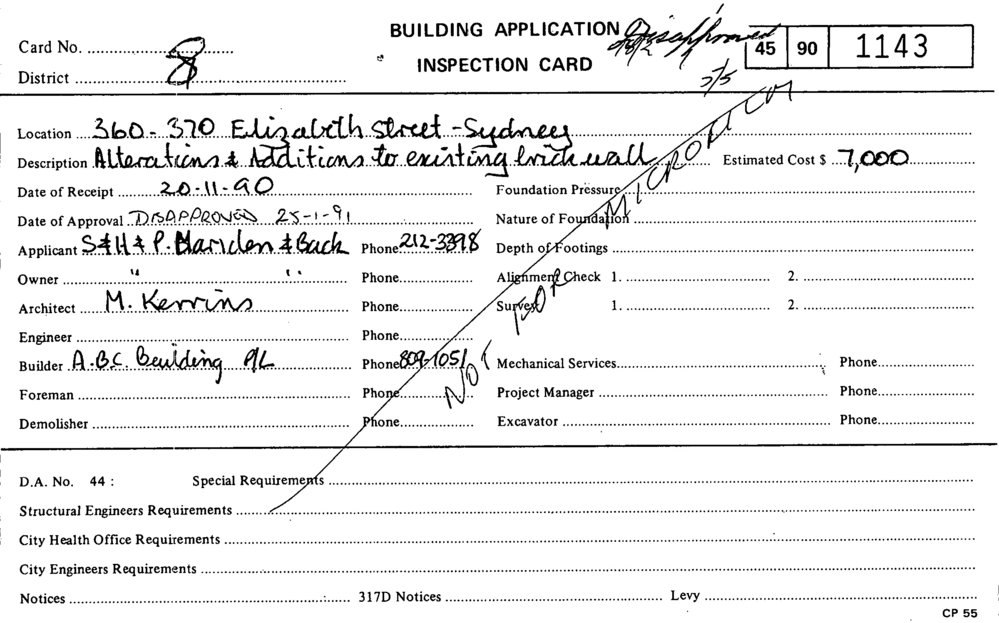 BUILDING APPLICATION Disapproved 45 90 1143
Card No. 8
INSPECTION CARD
District
Location 360-370 Elizabeth Street - Sydney
Description Alterations & Additions to existing brick wall Estimated Cost $ 7,000
Date of Receipt 20-11-90 Foundation Pressure
Date of Approval DISAPPROVED 25-1-91 Nature of Foundation
Applicant S & H & P. & Back Phone 212-3398 Depth of Footings
Owner " " Phone Alignment Check 1. 2.
Architect M. Kerrins Phone Survey 1. 2.
Engineer Phone
Builder A.B.C. Building P/L Phone 809-1051 Mechanical Services Phone
Foreman Phone Project Manager Phone
Demolisher Phone Excavator Phone
NOT FOR MICROFICH
D.A. No. 44 : Special Requirements
Structural Engineers Requirements
City Health Office Requirements
City Engineers Requirements
Notices 317D Notices Levy
CP 55